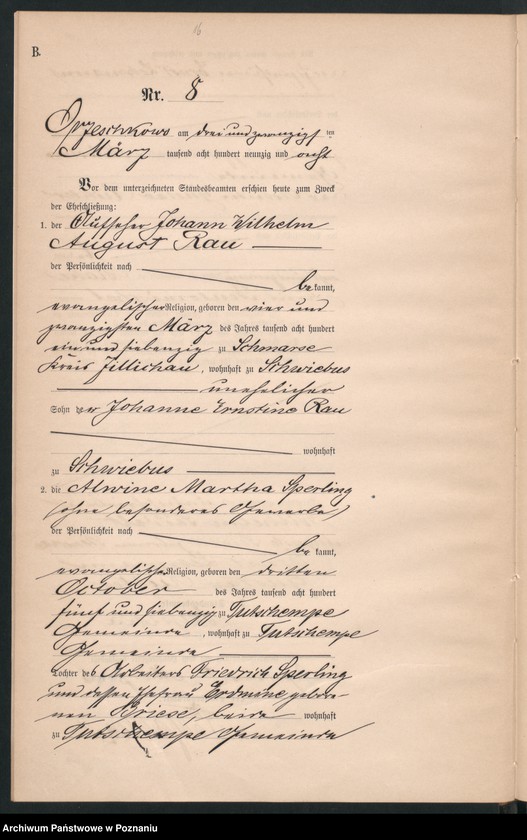 16
B.
Nr. 8
Opzeschkowo am drei und zwanzigsten
März tausend acht hundert neunzig und acht
Vor dem unterzeichneten Standesbeamten erschien heute zum Zweck
der Eheschließung:
1. der Aufseher Johann Wilhelm
August Rau
der Persönlichkeit nach
be kannt,
evangelischer Religion, geboren den vier und
zwanzigsten März des Jahres tausend acht hundert
ein und siebenzig zu Schmarse
Kreis Züllichau, wohnhaft zu Schwiebus
unehelicher
Sohn der Johanne Ernstine Rau
wohnhaft
zu Schwiebus
2. die Alwine Martha Sperling
(ohne besonderes Gewerbe)
der Persönlichkeit nach
be kannt,
evangelischer Religion, geboren den dritten
October des Jahres tausend acht hundert
fünf und siebenzig zu Tutschempe
Gemeinde, wohnhaft zu Tutschempe
Gemeinde
Tochter des Arbeiters Friedrich Sperling
und dessen Ehefrau Erdmine gebore-
nen Briese, beide wohnhaft
zu Tutschempe Gemeinde
Archiwum Państwowe w Poznaniu